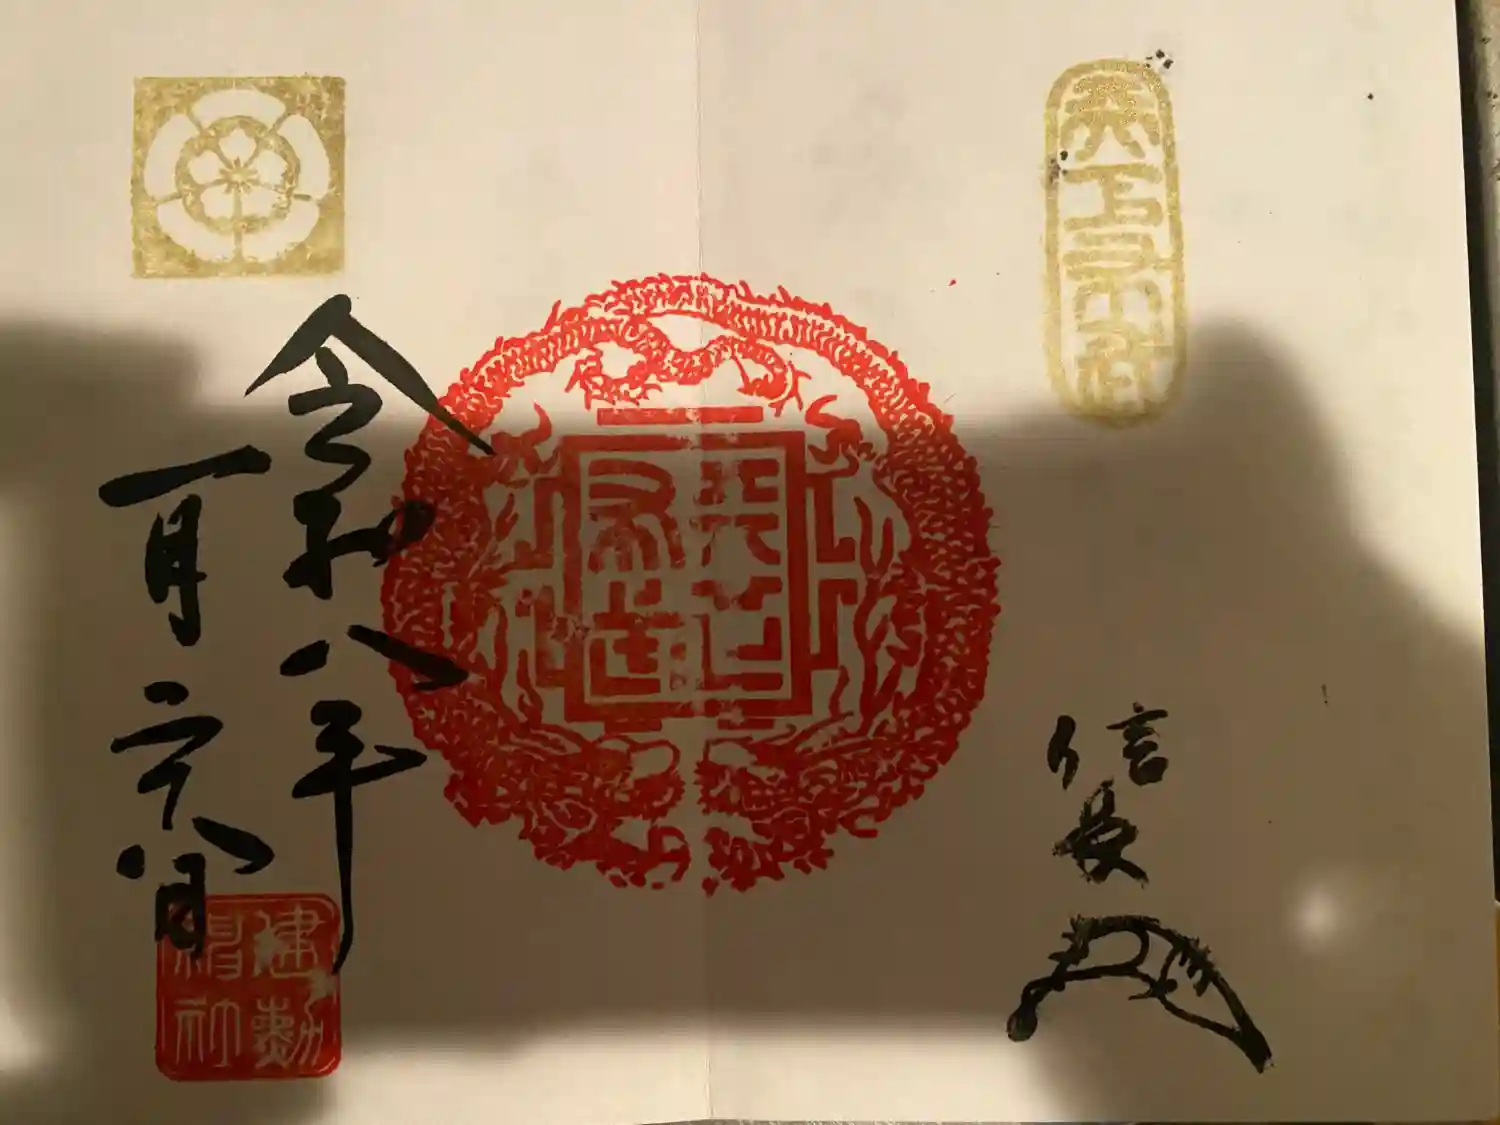 天下布武
信長
天下
布武
令和八年
一月二十八日
建勲
神社